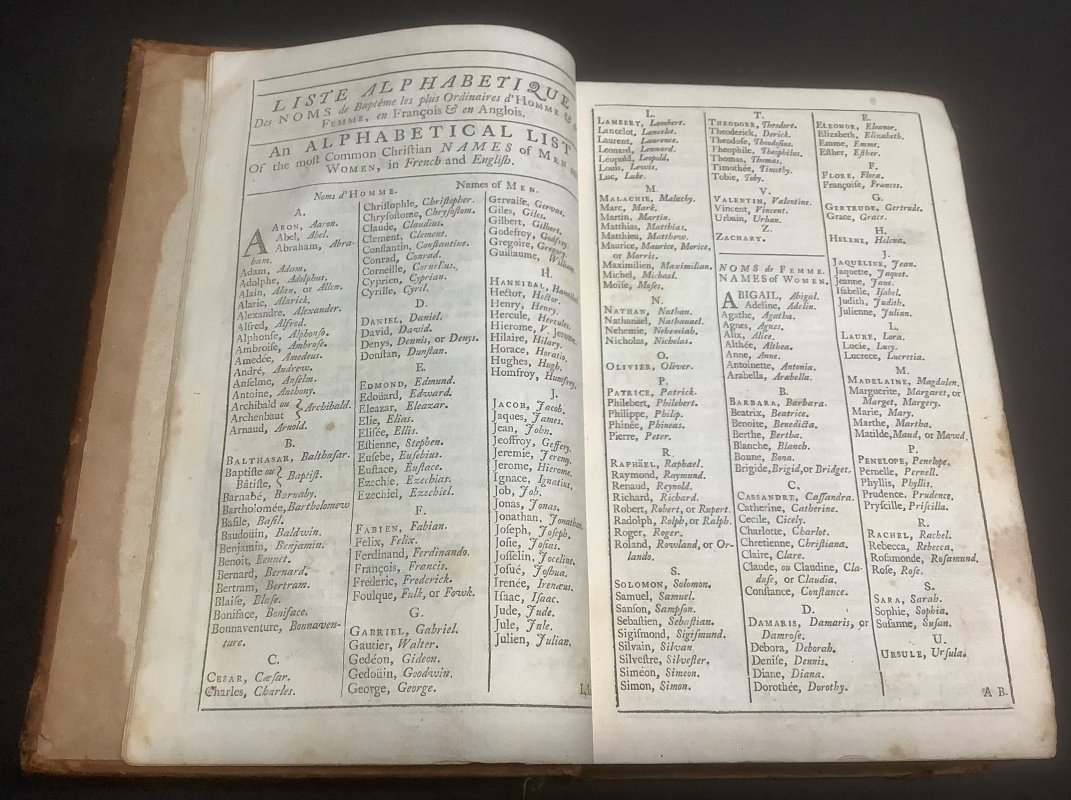 LISTE ALPHABETIQUE
Des NOMS de Baptême les plus Ordinaires d'HOMME &
FEMME, en François & en Anglois.
An ALPHABETICAL LIST
Of the most Common Christian NAMES of MEN
WOMEN, in French and English.
Noms d'HOMME.
A.
AARON, Aaron.
Abel, Abel.
Abraham, Abra-
ham.
Adam, Adam.
Adolphe, Adolphus.
Alain, Alan, or Allen.
Alaric, Alarick.
Alexandre, Alexander.
Alfred, Alfred.
Alphonse, Alphonso.
Ambroise, Ambrose.
Amedée, Amedeus.
André, Andrew.
Anselme, Anselm.
Antoine, Anthony.
Archibald ou } Archibald.
Archenbaut
Arnaud, Arnold.
B.
BALTHASAR, Balthasar.
Baptiste ou } Baptist.
Bâtiste,
Barnabé, Barnaby.
Bartholomée, Bartholomew
Basile, Basil.
Baudouin, Baldwin.
Benjamin, Benjamin.
Benoit, Bennet.
Bernard, Bernard.
Bertram, Bertram.
Blaise, Blase.
Boniface, Boniface.
Bonnaventure, Bonnaven-
ture.
C.
CESAR, Cæsar.
Charles, Charles.
Christophle, Christopher.
Chrysostome, Chrysostom.
Claude, Claudius.
Clement, Clement.
Constantin, Constantine.
Conrad, Conrad.
Corneille, Cornelius.
Cyprien, Cyprian.
Cyrille, Cyril.
D.
DANIEL, Daniel.
David, David.
Denys, Dennis, or Denys.
Donstan, Dunstan.
E.
EDMOND, Edmund.
Edoüard, Edward.
Eleazar, Eleazar.
Elie, Elias.
Elisée, Ellis.
Estienne, Stephen.
Eusebe, Eusebius.
Eustace, Eustace.
Ezechie, Ezechias.
Ezechiel, Ezechiel.
F.
FABIEN, Fabian.
Felix, Felix.
Ferdinand, Ferdinando.
François, Francis.
Frederic, Frederick.
Foulque, Fulk, or Fowk.
G.
GABRIEL, Gabriel.
Gautier, Walter.
Gedéon, Gideon.
Gedoüin, Goodwin.
George, George.
Names of MEN.
Gervaise, Gervas.
Giles, Giles.
Gilbert, Gilbert.
Godefroy, Godfrey.
Gregoire, Gregory.
Guillaume, William
H.
HANNIBAL,
Hector, Hector.
Henry, Henry.
Hercule, Hercules.
Hierome, V. Jerome.
Hilaire, Hilary.
Horace, Horatio.
Hughes, Hugh.
Homfroy, Humfrey.
J.
JACOB, Jacob.
Jaques, James.
Jean, John.
Jeoffroy, Geffery.
Jeremie, Jeremy.
Jerome, Hierome.
Ignace, Ignatius.
Job, Job.
Jonas, Jonas.
Jonathan, Jonathan
Joseph, Joseph.
Josie, Josias.
Josselin, Joceline.
Josué, Joshua.
Irenée, Irenæus.
Isaac, Isaac.
Jude, Jude.
Jule, Jule.
Julien, Julian.
L.
LAMBERT, Lambert.
Lancelot, Lancelot.
Laurent, Laurence.
Leonard, Lennard.
Leopold, Leopold.
Louis, Lewis.
Luc, Luke.
M.
MALACHIE, Malachy.
Marc, Mark.
Martin, Martin.
Matthias, Matthias.
Matthieu, Matthew.
Maurice, Maurice, Morice,
or Morris.
Maximilien, Maximilian.
Michel, Michael.
Moïse, Moses.
N.
NATHAN, Nathan.
Nathanael, Nathanael.
Nehemie, Nehemiah.
Nicholas, Nicholas.
O.
OLIVIER, Oliver.
P.
PATRICE, Patrick.
Philebert, Philebert.
Philippe, Philip.
Phinée, Phineas.
Pierre, Peter.
R.
RAPHAEL, Raphael.
Raymond, Raymund.
Renaud, Reynold.
Richard, Richard.
Robert, Robert, or Rupert.
Radolph, Rolph, or Ralph.
Roger, Roger.
Roland, Rowland, or Or-
lando.
S.
SOLOMON, Solomon.
Samuel, Samuel.
Sanson, Sampson.
Sebastien, Sebastian.
Sigismond, Sigismund.
Silvain, Silvan
Silvestre, Silvester.
Simeon, Simeon.
Simon, Simon.
T.
THEODORE, Theodore.
Theoderick, Derick.
Theodose, Theodosius.
Theophile, Theophilus.
Thomas, Thomas.
Timothée, Timothy.
Tobie, Toby.
V.
VALENTIN, Valentine.
Vincent, Vincent.
Urbain, Urban.
Z.
ZACHARY.
NOMS de FEMME.
NAMES of WOMEN.
ABIGAIL, Abigal.
Adeline, Adelin.
Agathe, Agatha.
Agnes, Agnes.
Alix, Alice.
Althée, Althea.
Anne, Anne.
Antoinette, Antonia.
Arabella, Arabella.
B.
BARBARA, Barbara.
Beatrix, Beatrice.
Benoite, Benedicta.
Berthe, Bertha.
Blanche, Blanch.
Bonne, Bona.
Brigide, Brigid, or Bridget.
C.
CASSANDRE, Cassandra.
Catherine, Catherine.
Cecile, Cicely.
Charlotte, Charlot.
Chretienne, Christiana.
Claire, Clare.
Claude, ou Claudine, Cla-
duse, or Claudia.
Constance, Constance.
D.
DAMARIS, Damaris, or
Damrose.
Debora, Deborah.
Denise, Dennis.
Diane, Diana.
Dorothée, Dorothy.
E.
ELEONOR, Eleanor.
Elizabeth, Elizabeth.
Emme, Emme.
Esther, Esther.
F.
FLORE, Flora.
Françoise, Frances.
G.
GERTRUDE, Gertrude.
Grace, Grace.
H.
HELENE, Helena.
J.
JAQUELINE, Jean.
Jaquette, Jaquet.
Jeanne, Jane.
Isabelle, Isabel.
Judith, Judith.
Julienne, Julian.
L.
LAURE, Lora.
Lucie, Lucy.
Lucrece, Lucretia.
M.
MADELAINE, Magdalen.
Marguerite, Margaret, or
Marget, Margery.
Marie, Mary.
Marthe, Martha.
Matilde, Maud, or Mawd.
P.
PENELOPE, Penelope.
Pernelle, Pernell.
Phyllis, Phyllis.
Prudence, Prudence.
Pryscille, Priscilla.
R.
RACHEL, Rachel.
Rebecca, Rebecca.
Rosamonde, Rosamund.
Rose, Rose.
S.
SARA, Sarah.
Sophie, Sophia.
Susanne, Susan.
U.
URSULE, Ursula.
A B.